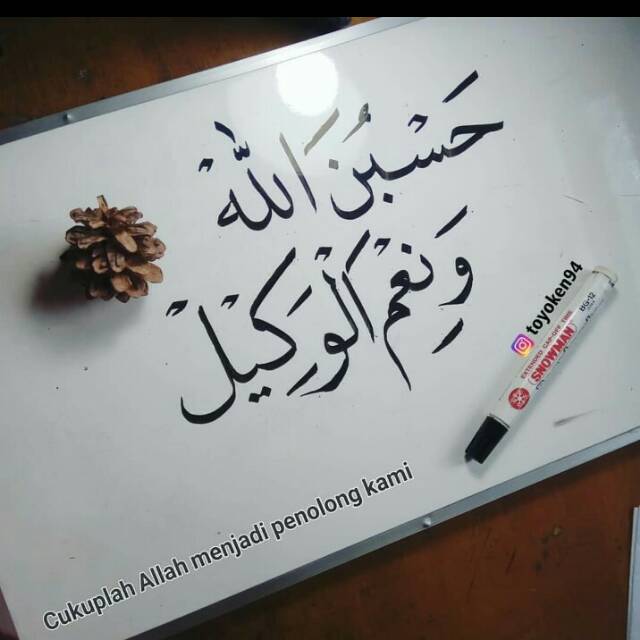 حَسْبُنَ اللّٰهْ
وَنِعْمَ الْوَكِيْلْ
toyoken94
EXTENDED CAP-OFF TIME
SNOWMAN
BG-12
Cukuplah Allah menjadi penolong kami